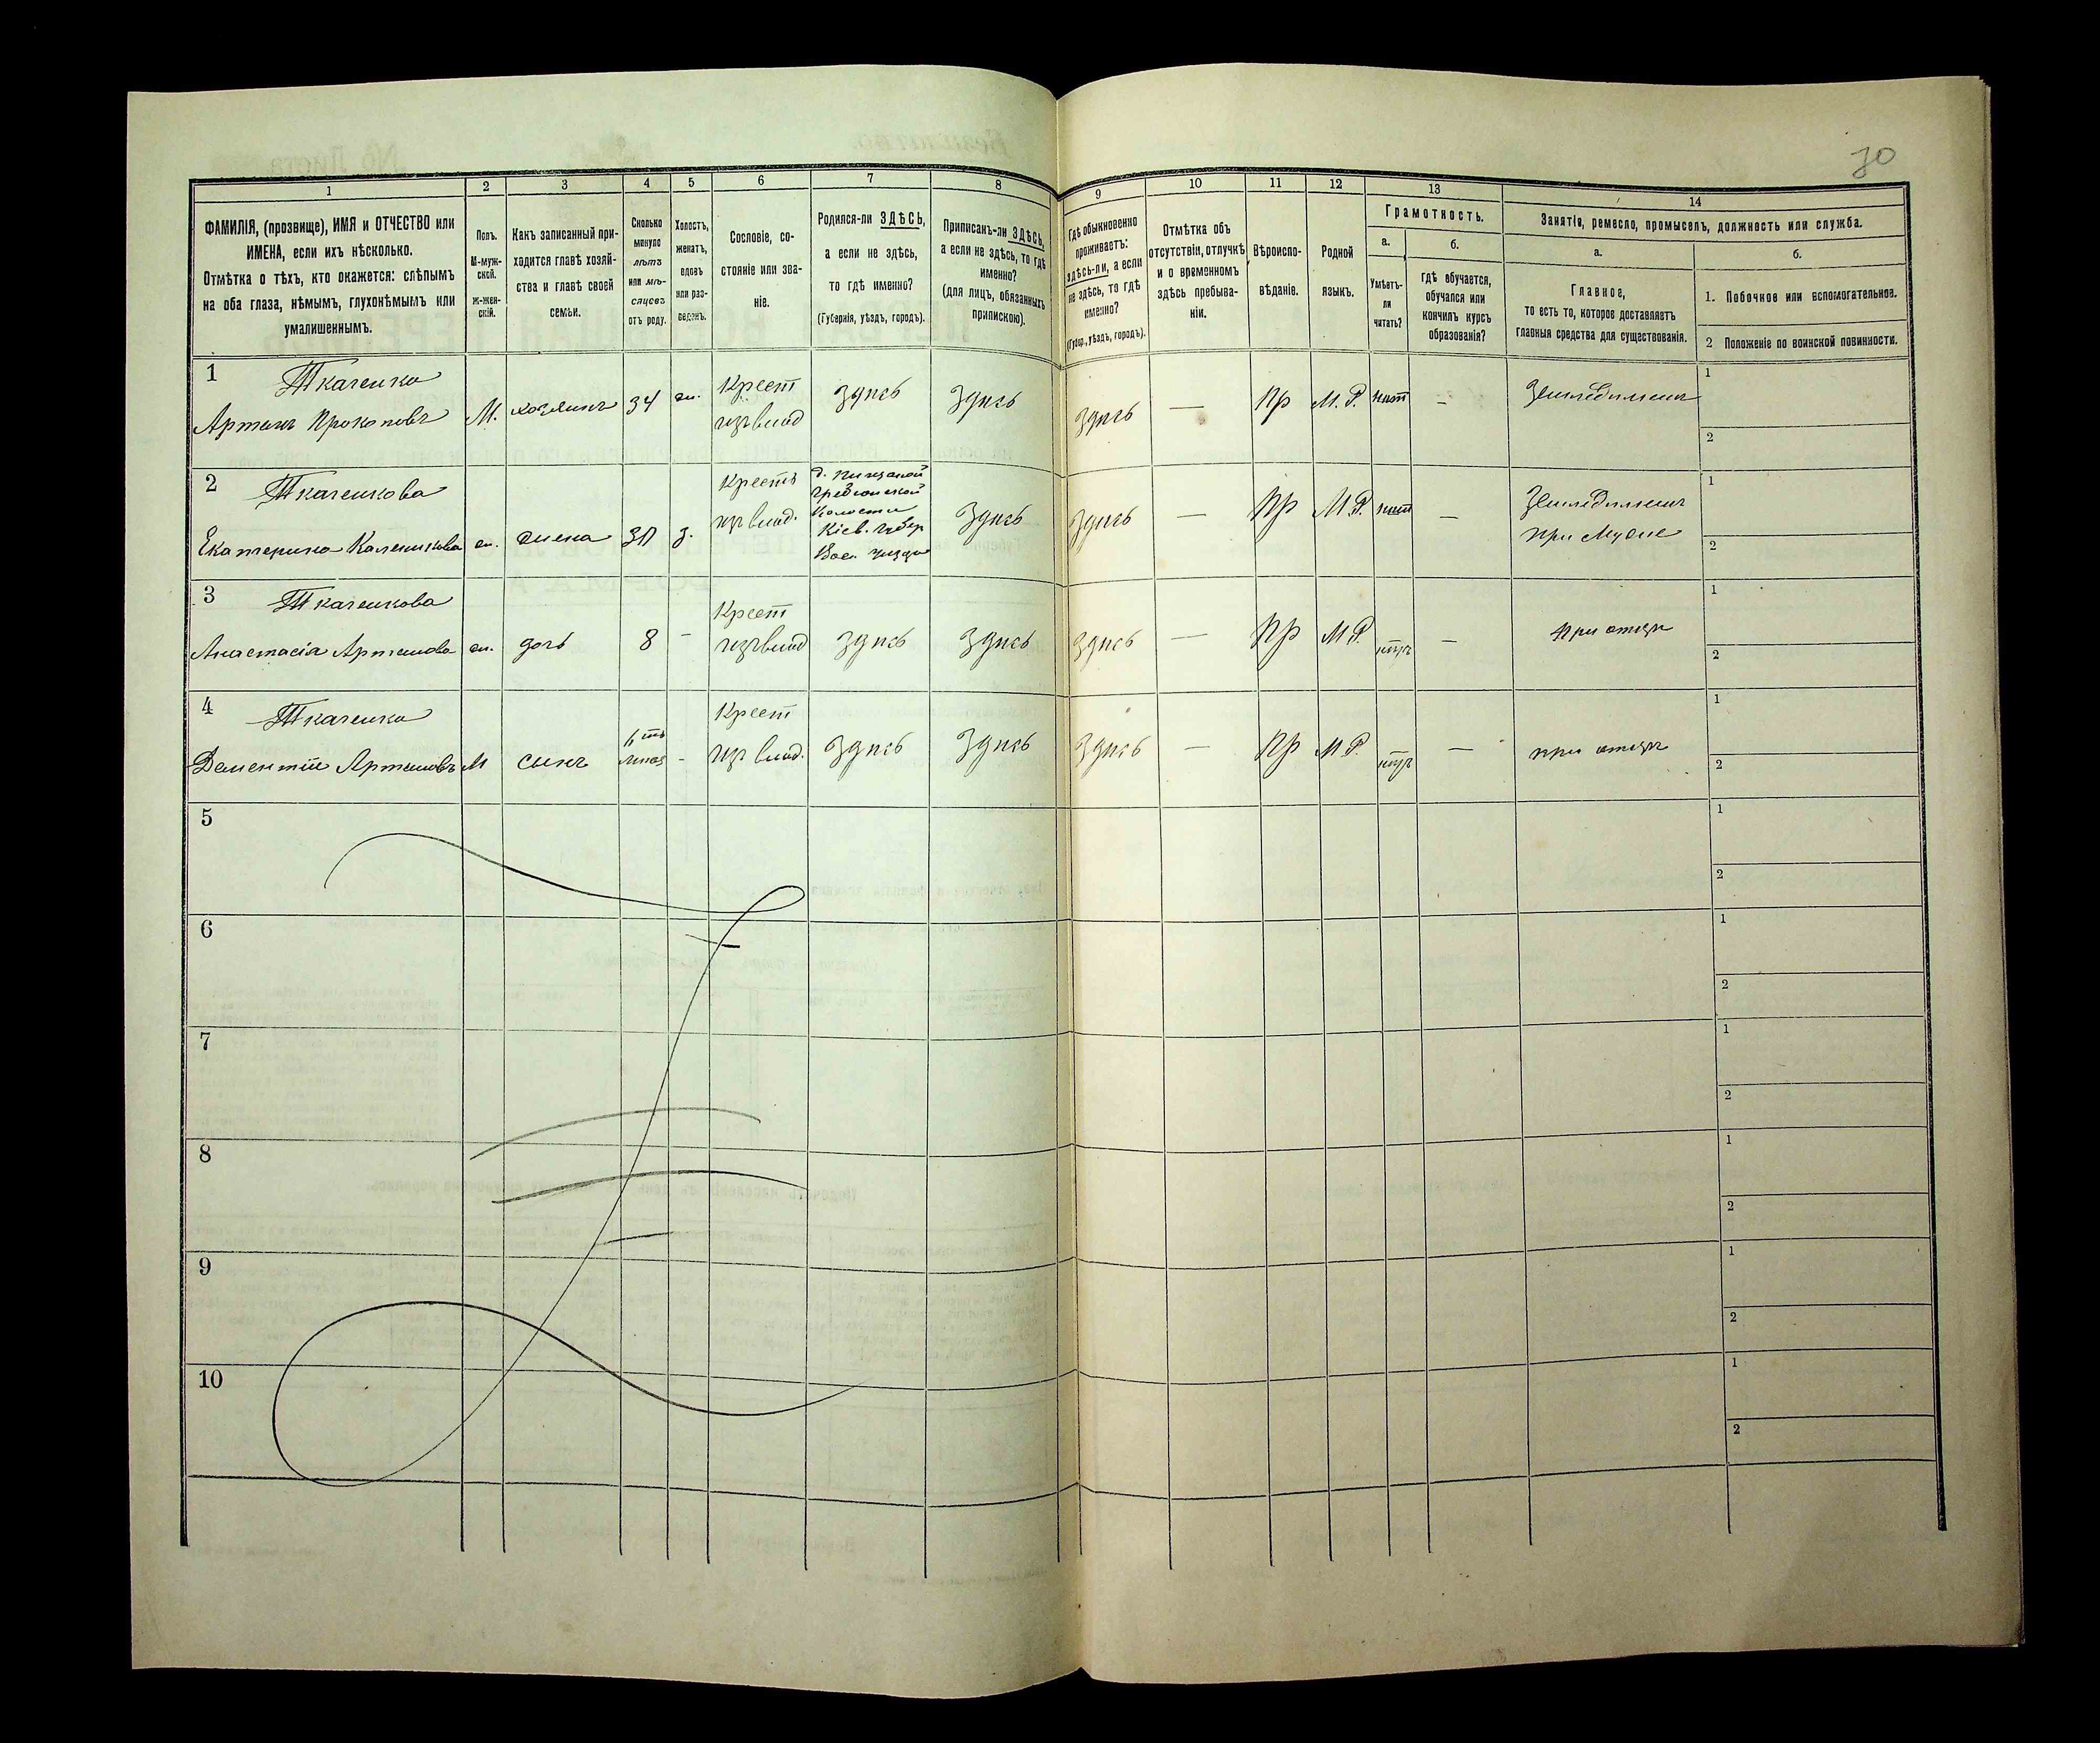 30
1 2 3 4 5 6 7 8 9 10 11 12 13 14
ФАМИЛІЯ, (прозвище), ИМЯ и ОТЧЕСТВО или
ИМЕНА, если ихъ нѣсколько.
Отмѣтка о тѣхъ, кто окажется: слѣпымъ
на оба глаза, нѣмымъ, глухонѣмымъ или
умалишеннымъ.
Полъ.
М-муж-
ской.
Ж-жен-
скій.
Какъ записанный при-
ходится главѣ хозяй-
ства и главѣ своей
семьи.
Сколько
минуло
лѣтъ
или мѣ-
сяцевъ
отъ роду.
Холостъ,
женатъ,
вдовъ
или раз-
веденъ.
Сословіе, со-
стояніе или зва-
ніе.
Родился-ли ЗДѢСЬ,
а если не здѣсь,
то гдѣ именно?
(Губернія, уѣздъ, городъ).
Приписанъ-ли ЗДѢСЬ,
а если не здѣсь, то гдѣ
именно?
(для лицъ, обязанныхъ
припискою).
Гдѣ обыкновенно
проживаетъ:
здѣсь-ли, а если
не здѣсь, то гдѣ
именно?
(Губер., уѣздъ, городъ).
Отмѣтка объ
отсутствіи, отлучкѣ
и о временномъ
здѣсь пребыва-
ніи.
Вѣроиспо-
вѣданіе.
Родной
языкъ.
Грамотность.
а.
Умѣетъ-
ли
читать?
б.
Гдѣ обучается,
обучался или
кончилъ курсъ
образованія?
Занятіе, ремесло, промыселъ, должность или служба.
а.
Главное,
то есть то, которое доставляетъ
главныя средства для существованія.
б.
1. Побочное или вспомогательное.
2 Положеніе по воинской повинности.
1 Ткаченко
Артемъ Прокоповъ М. хозяинъ 34 ж. Крест
изъ влад здѣсь здѣсь здѣсь — Пр М.Р. нѣт — Земледѣлецъ
1
2
2 Ткаченкова
Екатерина Каленикова ж. жена 30 з. Крестъ
изъ влад.
Кіев. губер
здѣсь здѣсь — Пр М.Р. нѣт — Земледѣлецъ
при мужѣ
1
2
3 Ткаченкова
Анастасія Артемова ж. дочь 8 - Крест
изъ влад здѣсь здѣсь здѣсь — Пр М.Р. — при отцѣ
1
2
4 Ткаченко
Дементій Артемовъ М сынъ - Крест
изъ влад. здѣсь здѣсь здѣсь — Пр М.Р. — при отцѣ
1
2
5
1
2
6
1
2
7
1
2
8
1
2
9
1
2
10
1
2